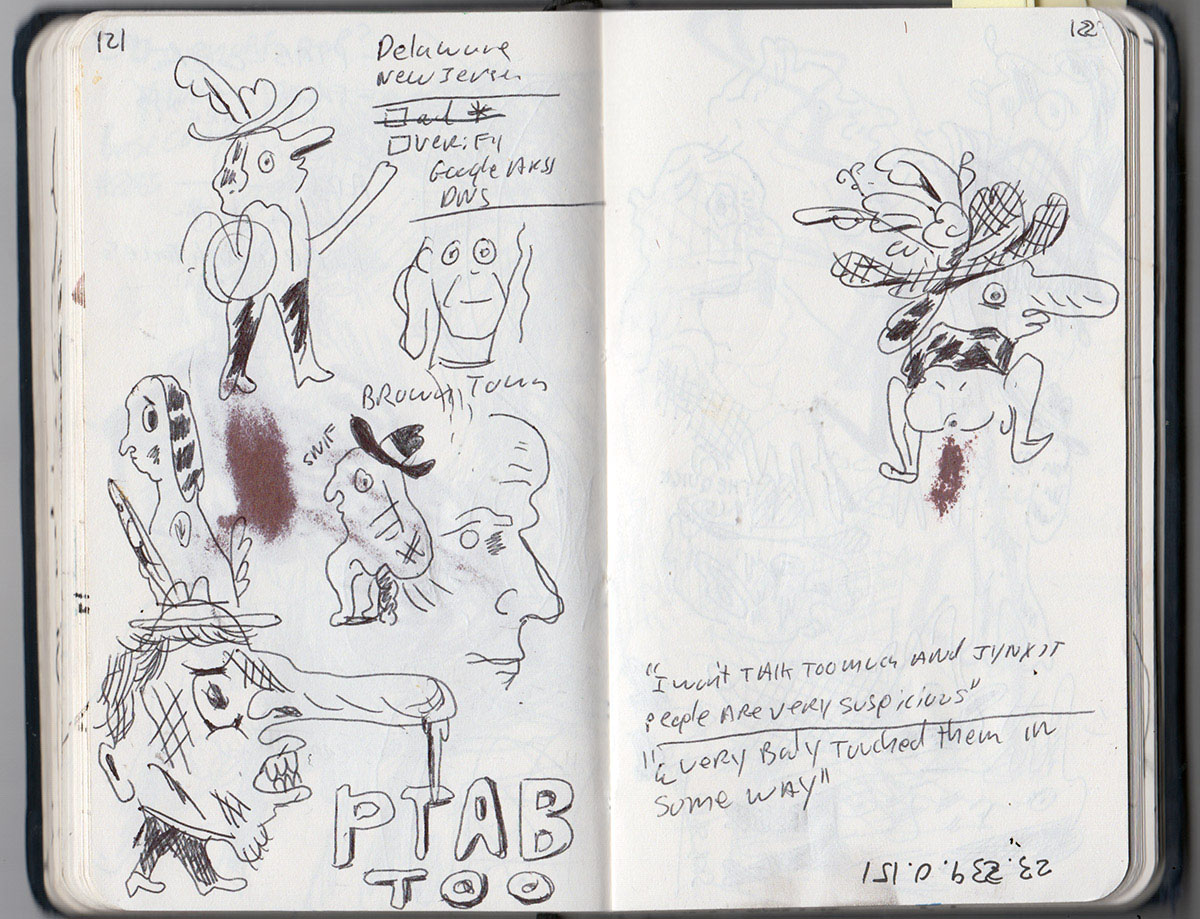 121
Delaware
New Jersey
Verify
Google
DNS
BROWN TOWN
SNIF
PTAB
TOO
122
"I won't TALK TOO much AND JYNX IT
people ARE very suspicious"
"Every Body Touched them in
some WAY"
23.239.0.151